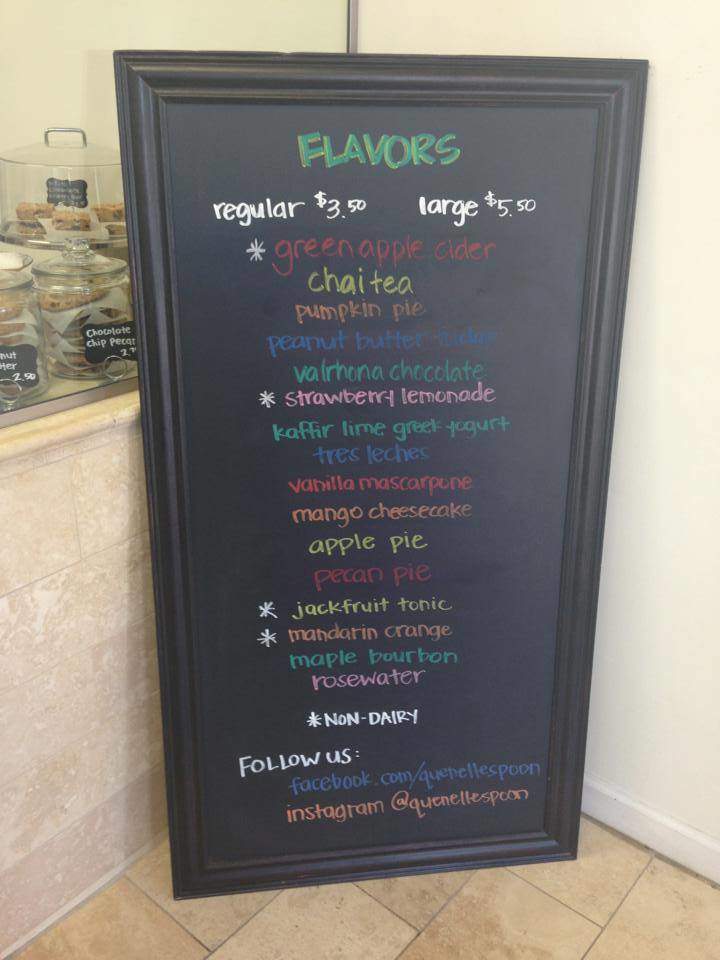 FLAVORS
regular $3.50 large $5.50
* green apple cider
chai tea
pumpkin pie
peanut butter fudge
valrhona chocolate
* strawberry lemonade
kaffir lime greek yogurt
tres leches
vanilla mascarpone
mango cheesecake
apple pie
pecan pie
* jackfruit tonic
* mandarin orange
maple bourbon
rosewater
* NON-DAIRY
FOLLOW US:
facebook.com/quenellespoon
instagram @quenellespoon
Chocolate
chip pecan
2.50